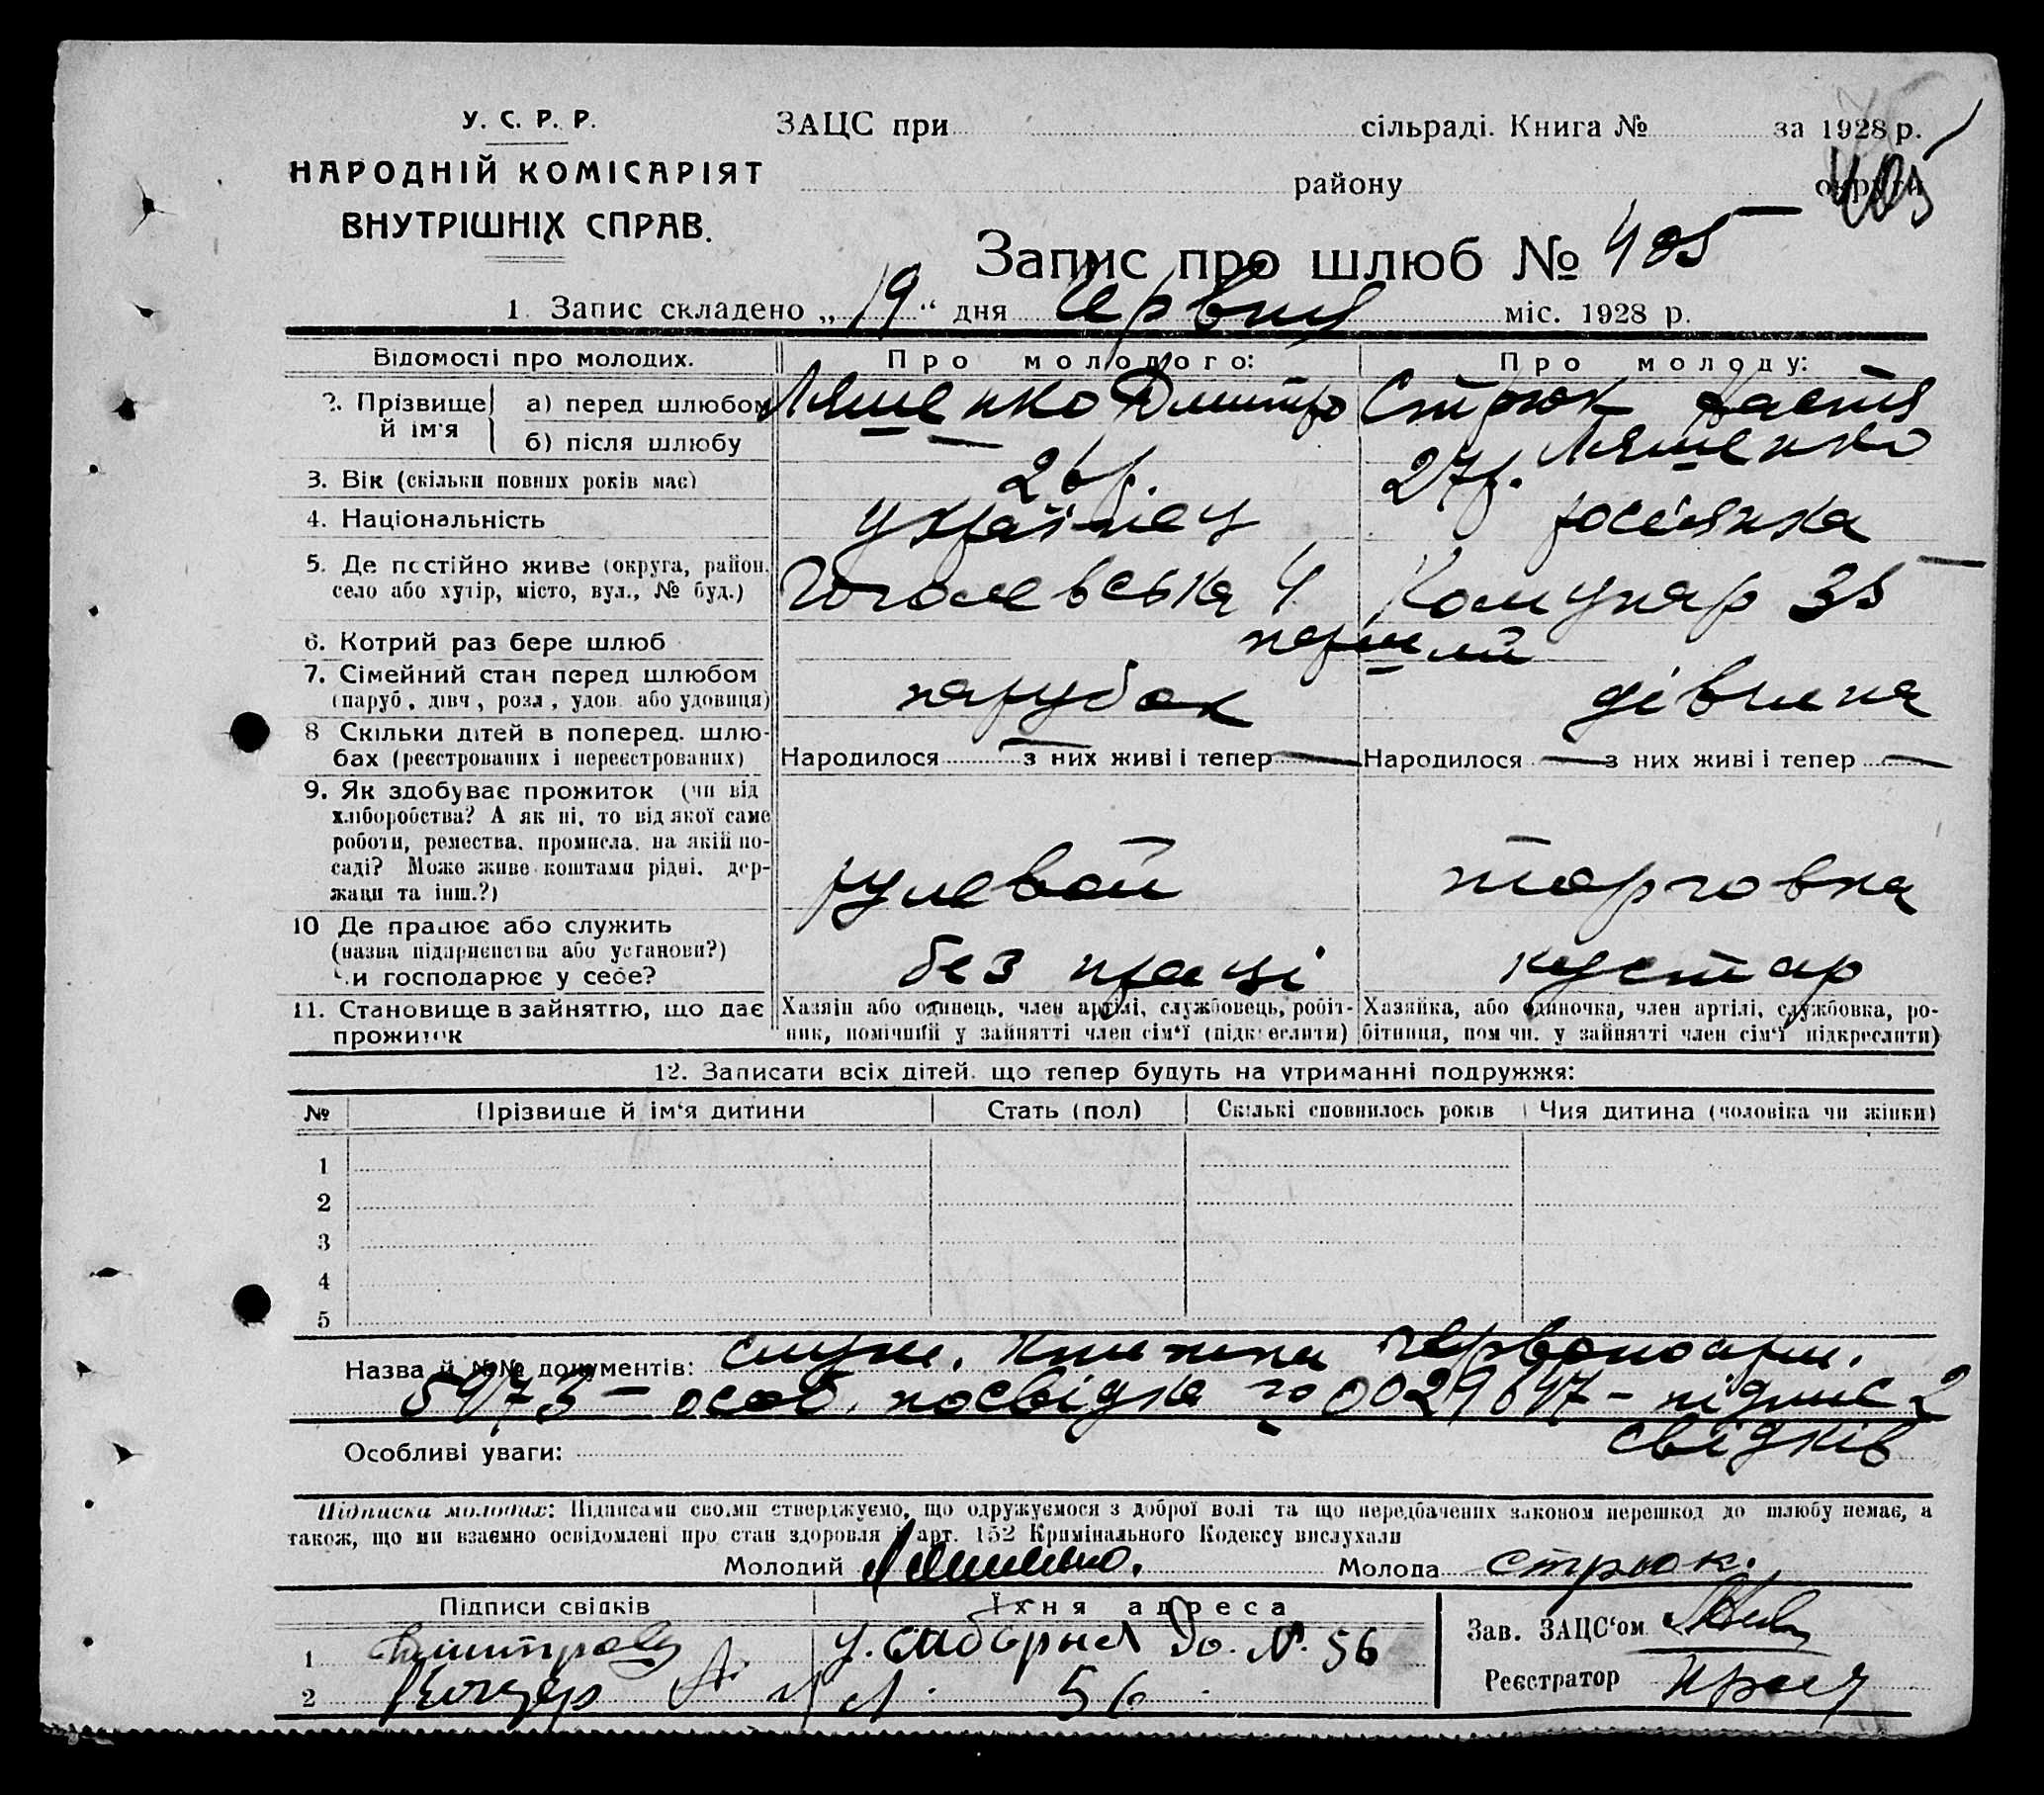 У. С. Р. Р.
НАРОДНІЙ КОМІСАРІЯТ
ВНУТРІШНІХ СПРАВ.
ЗАЦС при сільраді. Книга № за 1928 р.
району округи
405
Запис про шлюб № 405
1. Запис складено „19“ дня Червня міс. 1928 р.
Відомості про молодих. Про молодого: Про молоду:
2. Прізвище й ім'я а) перед шлюбом Ляшенко Дмитро Стрюк Настя
б) після шлюбу — Ляшенко
3. Вік (скільки повних років має) 26 р. 27 р.
4. Національність українец росіянка
5. Де постійно живе (округа, район,
село або хутір, місто, вул., № буд.) Гоголевська 4 Комунар 35
6. Котрий раз бере шлюб перший
7. Сімейний стан перед шлюбом
(паруб., дівч., розл., удов. або удовиця) парубок дівчина
8 Скільки дітей в поперед. шлю-
бах (реєстрованих і нереєстрованих) Народилося — з них живі і тепер — Народилося — з них живі і тепер —
9. Як здобуває прожиток (чи від
хліборобства? А як ні, то від якої саме
роботи, ремества, промисла, на якій по-
саді? Може живе коштами рідні, дер-
жави та інш.?) рулевой торговка
10 Де працює або служить
(назва підприємства або установи?)
Чи господарює у себе? без праці кустар
11. Становище в зайняттю, що дає
прожиток
Хазяїн або одинець, член артілі, службовець, робіт-
ник, помічний у зайнятті член сім'ї (підкреслити)
Хазяйка, або одиночка, член артілі, службовка, ро-
бітниця, помічн. у зайнятті член сім'ї підкреслити)
12. Записати всіх дітей, що тепер будуть на утриманні подружжя:
№ Прізвище й ім'я дитини Стать (пол) Скількі сповнилось років Чия дитина (чоловіка чи жінки)
1
2
3
4
5
Назва й №№ документів: служ. книжка Червоноарм.
5973 — особ. посвідка 0029647 — підпис 2
свідків
Особливі уваги:
Підписка молодих: Підписами своїми стверджуємо, що одружуємося з доброї волі та що передбачених законом перешкод до шлюбу немає, а
також, що ми взаємно освідомлені про стан здоровля і арт. 152 Кримінального Кодексу вислухали
Молодий Ляшенко. Молода Стрюк.
Підписи свідків Їхня адреса
1 56
2 56
Зав. ЗАЦС'ом
Реєстратор